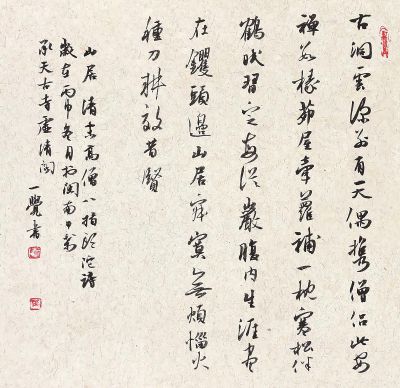 古洞雲深別有天偶攜僧侣此安
禪數椽茆屋牽蘿補一枕寒松伴
鶴眠習定每從巖腹内生涯盡
在钁頭邊山居寂寞無煩惱火
種刀耕效昔賢
山居 清末高僧八指頭陀詩
歲在丙申冬月於閩南
承天古寺虛清閣
一覺書